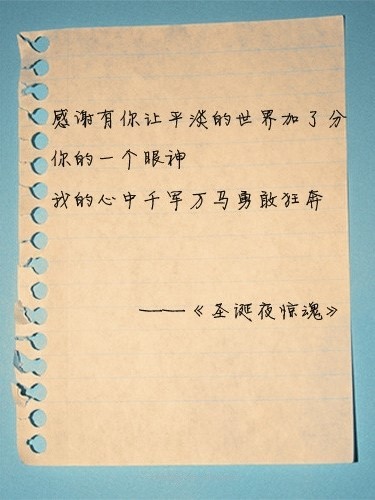 感谢有你让平淡的世界加了分
你的一个眼神
我的心中千军万马勇敢狂奔
——《圣诞夜惊魂》